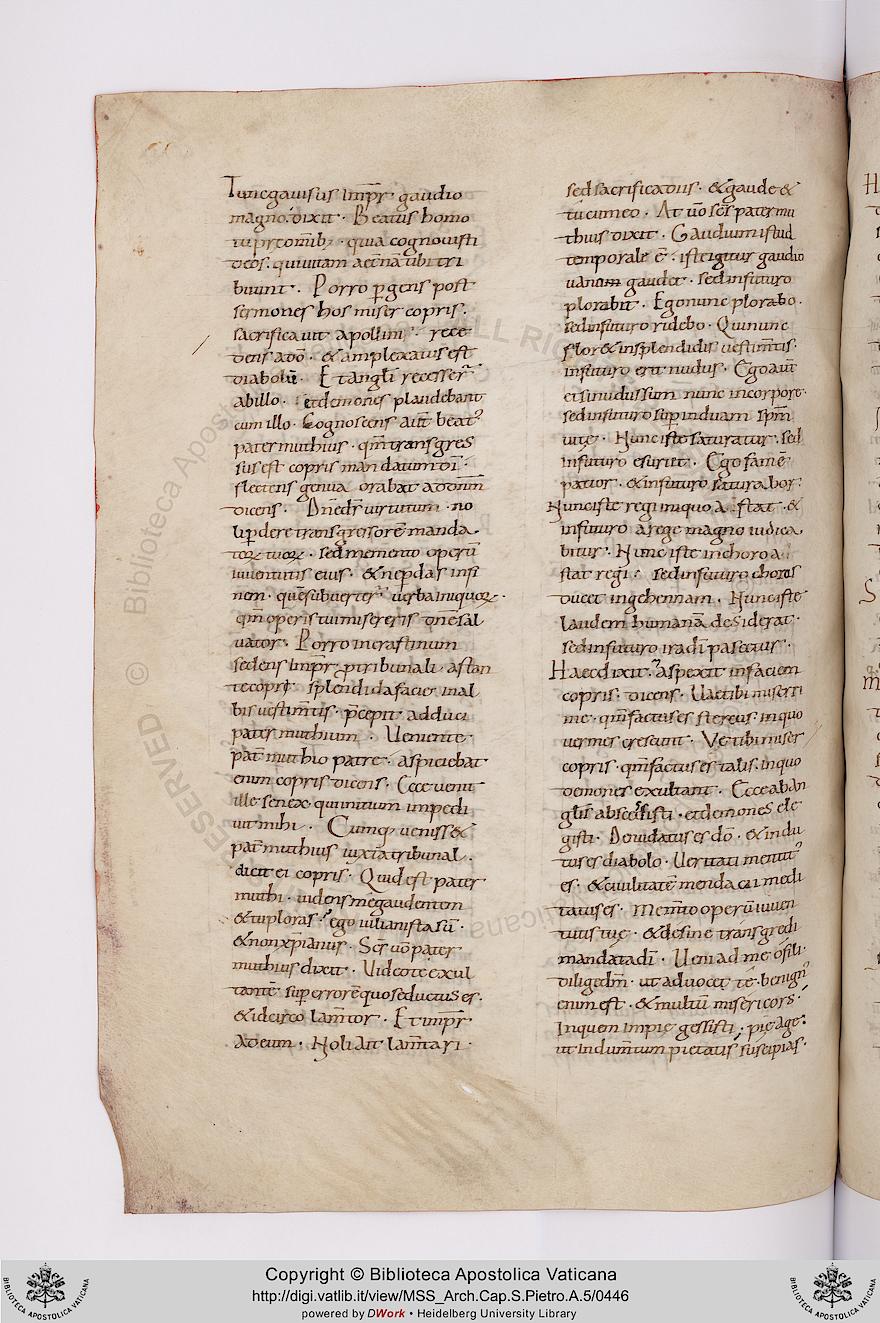 Tunc gavisus imp̄r gaudio
magno. dixit · Beatus homo
tu p̄r com̄ib; · quia cognovisti
deos. qui vitam aet̄nā tibi tri
buunt · Porro p̱gens post
sermones hos miser copris ·
sacrificavit apollini · rece
dens a dō · & amplexatus est
diabolū · Et angl̄i recesser̄
ab illo · et demones plaudebant
cum illo · Cognoscens aut̄ beat᾽
pater muthius · qm̄ transgres
sus est copris mandatum dī ·
flectens genua orabat ad dn̄m
dicens · Dn̄e dr̄ virtutum · no
li p̱dere transgressorē manda
torꝝ tuorꝝ · sed memento operū
iuventutis eius · & ne p̱das in fi
nem · quē subverter̄ verba iniquorꝝ ·
qm̄ operis tui misereris dn̄e sal
vator · Porro in crastinum
sedens imp̄r p̱ tribunali · astan
te copre splendida facie in al
bis vestim̄tis · p̄cepit adduci
pater muthium · Veniente
pat̄ muthio patre · aspiciebat
eum copris dicens · Ecce venit
ille senex · qui initium impedi
vit mihi · Cumq; veniss&
pat̄ muthius iuxta tribunal ·
dicit ei copris · Quid est pater
muthi · videns me gaudentem
& tu ploras · ego iulianista sū ·
& non xp̄ianus · Ser̄ v̄o pater
muthius dixit · Video te exul
tantē sup̱ errorē quo seductus es ·
& idcirco lam̄tor · Et imp̄r
ad eum · Noli ait lam̄tari ·
sed sacrificavis · & gaude &
tu cum eo · At v̄o sc̄s pater mu
thius dixit · Gaudium istud
temporale ē · iste igitur gaudio
vanum gaudet · sed in futuro
plorabit · Ego nunc plorabo ·
sed in futuro ridebo · Qui nunc
flor& in splendidis vestim̄tis ·
in futuro erit nudus · Ego aut̄
etsi nudus sum nunc in corpore ·
sed in futuro sup̱induam sp̄m
vitę · Nunc iste saturatur · sed
in futuro esuriet · Ego famē
patior · & in futuro saturabor ·
Nunc iste regi iniquo astat · &
in futuro a rege magno iudica
bitur · Nunc iste in choro a
stat regi · sed in futuro choros
ducet in gehennam · Nunc iste
laudem humanā desiderat ·
sed in futuro iradī pascetur ·
Haec dixit · aspexit in faciem
copris · dicens · Vae tibi miserri
me · qm̄ factus es stercus · in quo
vermes crescunt · Ve tibi miser
copris · qm̄ factus es talis · in quo
demones exultant · Ecce ab an
glīs abscessisti · et demones ele
gisti · Denudatus es dō · & indu
tus es diabolo · Veritati mentit᾽
es · & civilitatē mendacii medi
tatus es · Mem̄to operū iuven
tutis tuę · & desine transgredi
mandata dī · Veni ad me o fili ·
diligē dm̄ · ut advocet te · benign᾽
enim est · & multū misericors ·
In quem impie gessisti · pię age ·
ut indum̄tum pietatis suscipias ·
Copyright © Biblioteca Apostolica Vaticana
http://digi.vatlib.it/view/MSS_Arch.Cap.S.Pietro.A.5/0446
powered by DWork • Heidelberg University Library